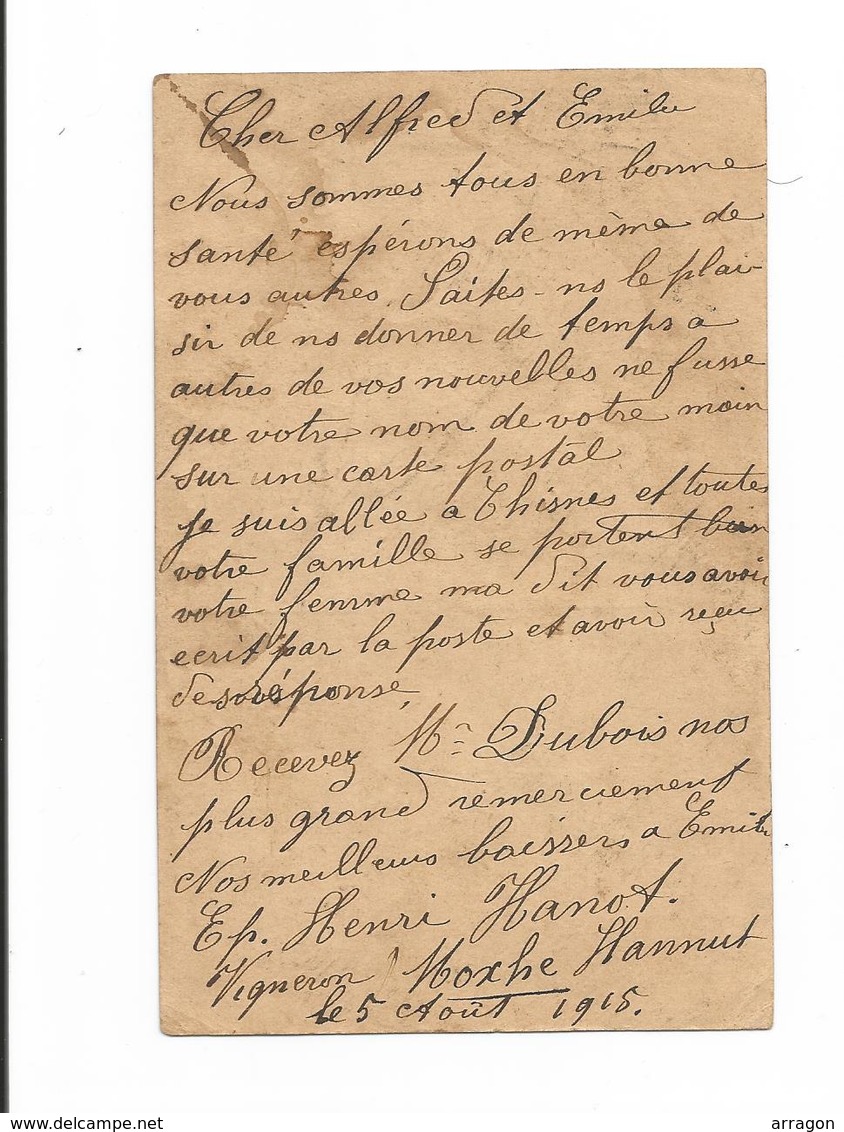 Cher Alfred et Emile
Nous sommes tous en bonne
santé espérons de même de
vous autres. Faites-ns le plai-
sir de ns donner de temps a
autres de vos nouvelles ne fusse
que votre nom de votre main
sur une carte postal
je suis allée a Thisnes et toutes
votre famille se portent bien
votre femme ma dit vous avoir
ecrit par la poste et avoir reçu
des réponse,
Recevez Mr Dubois nos
plus grand remerciement
Nos meilleurs baissers a Emile
Ep. Henri Hanot.
Vigneron Moxhe Hannut
le 5 Août 1915.
delcampe.net
arragon